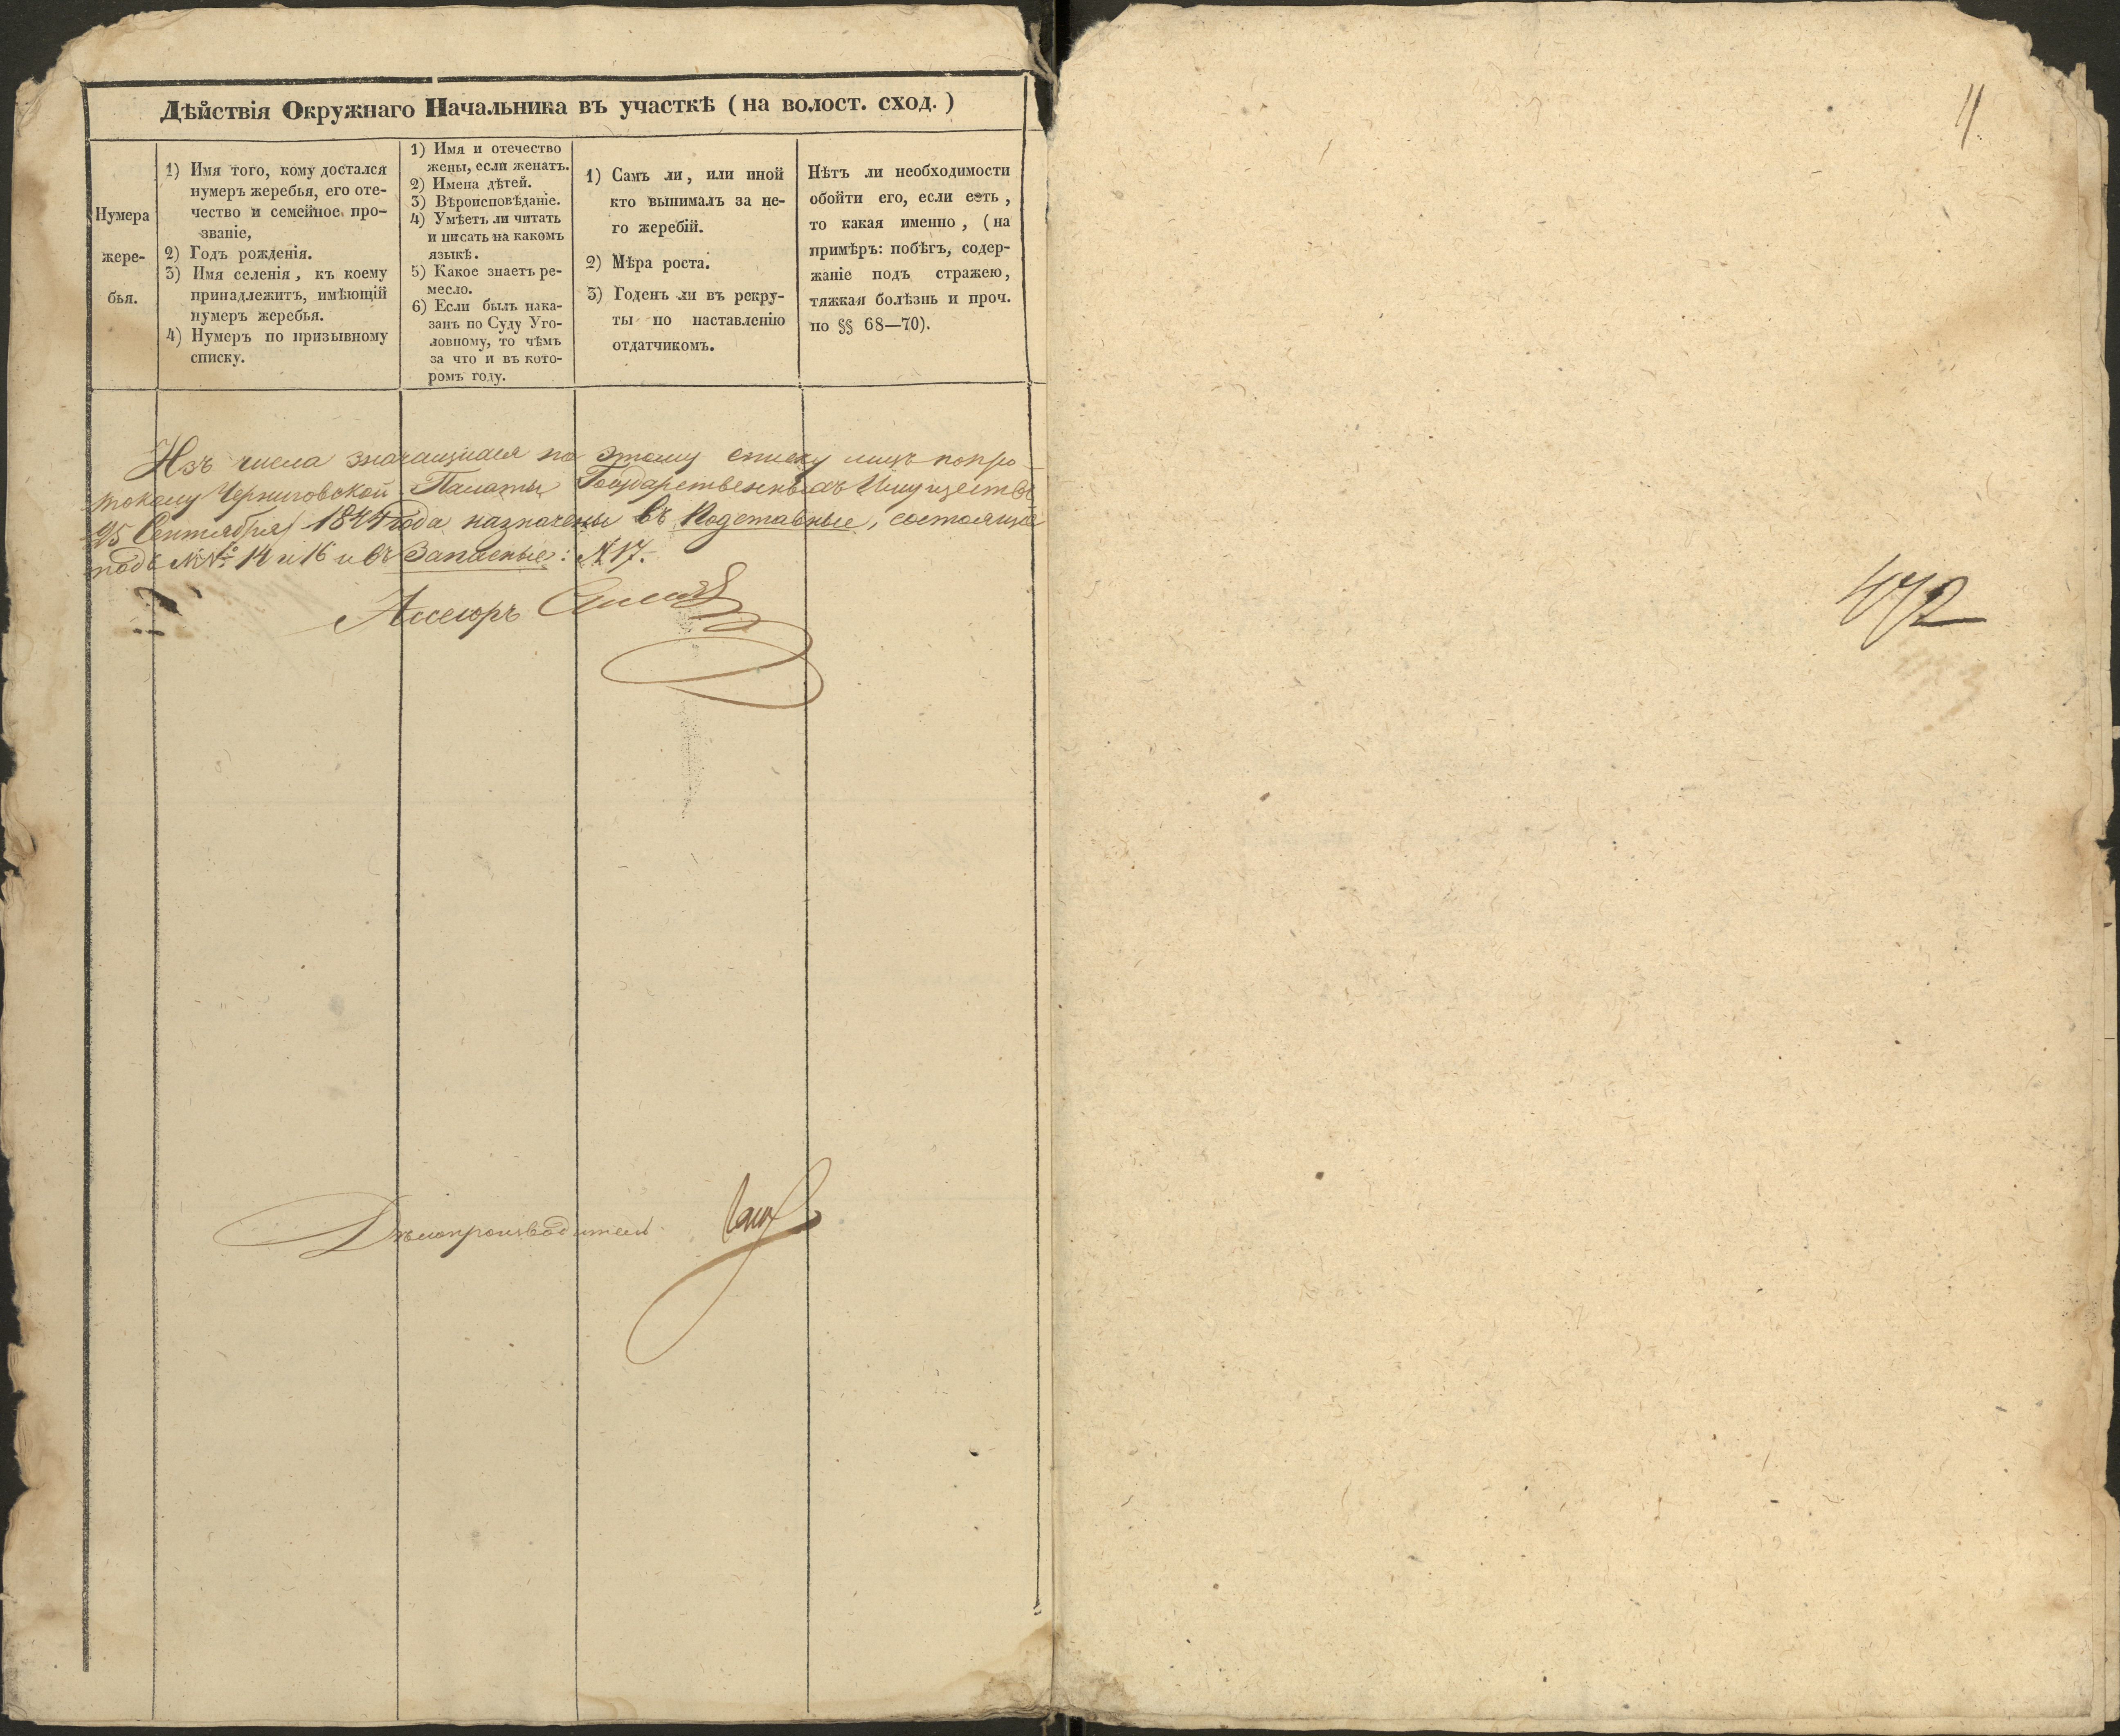 Дѣйствія Окружнаго Начальника въ участкѣ (на волост. сход.)
Нумера
жере-
бья.
1) Имя того, кому достался
нумеръ жеребья, его оте-
чество и семейное про-
званіе,
2) Годъ рожденія.
3) Имя селенія, къ коему
принадлежитъ, имѣющій
нумеръ жеребья.
4) Нумеръ по призывному
списку.
1) Имя и отечество
жены, если женатъ.
2) Имена дѣтей.
3) Вѣроисповѣданіе.
4) Умѣетъ ли читать
и писать на какомъ
языкѣ.
5) Какое знаетъ ре-
месло.
6) Если былъ нака-
занъ по Суду Уго-
ловному, то чѣмъ
за что и въ кото-
ромъ году.
1) Самъ ли, или иной
кто вынималъ за не-
го жеребій.
2) Мѣра роста.
3) Годенъ ли въ рекру-
ты по наставленію
отдатчикомъ.
Нѣтъ ли необходимости
обойти его, если есть,
то какая именно, (на
примѣръ: побѣгъ, содер-
жаніе подъ стражею,
тяжкая болѣзнь и проч.
по §§ 68—70).
Изъ числа значащихся по этому списку лицъ по про-
токолу Черниговской Палаты Государственныхъ Имуществъ
25 Сентября года назначены въ Подставные, состоящіе
подъ №№ 14 и 16 и въ Запасные: № 17.
Ассесоръ
Дѣлопроизводитель
11
472